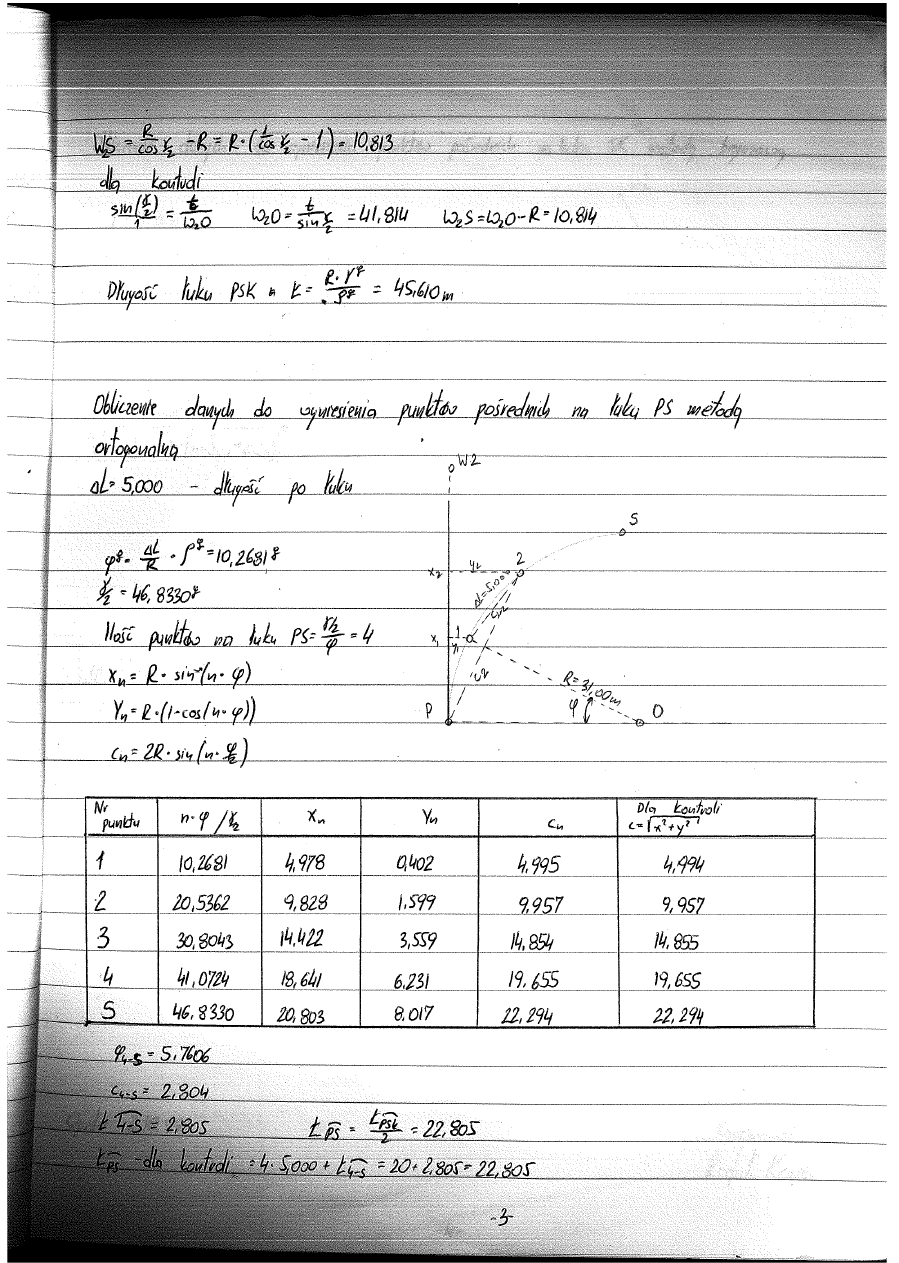 W₂S = R/cos γ/2 - R = R·(1/cos γ/2 - 1) = 10,813
dla kontroli
sin(γ/2)/1 = t/W₂O W₂O = t/sin γ/2 = 41,814 W₂S = W₂O - R = 10,814
Długość łuku PSK Ł = R·γᵍ/ρᵍ = 45,610 m
Obliczenie danych do wyniesienia punktów pośrednich na łuku PS metodą
ortogonalną
ΔL = 5,000 - długość po łuku
φᵍ = ΔL/R · ρᵍ = 10,2681ᵍ
γ/2 = 46,8330ᵍ
Ilość punktów na łuku PS = γ/2/φ = 4
Xn = R · sin(n · φ)
Yn = R·(1-cos(n·φ))
cn = 2R · sin(n · φ/2)
W2
S
X₂ Y₂ 2
ΔL=5,000
X₁ Y₁ 1
c₂
R=31,00m
φ
P O
Nr punktu n·φ / γ/2 Xn Yn cn Dla kontroli c=√x²+y²
1 10,2681 4,978 0,402 4,995 4,994
2 20,5362 9,828 1,599 9,957 9,957
3 30,8043 14,422 3,559 14,854 14,855
4 41,0724 18,641 6,231 19,655 19,655
S 46,8330 20,803 8,017 22,294 22,294
φ₄₋S = 5,7606
c₄₋S = 2,804
Ł 4-S = 2,805 Ł PS = Ł PSK/2 = 22,805
Ł PS - dla kontroli = 4 · 5,000 + Ł 4-S = 20 + 2,805 = 22,805
-3-